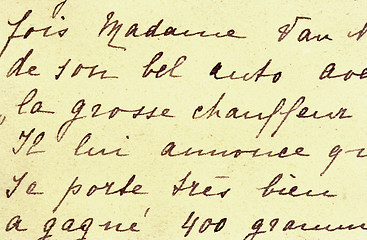 fois Madame Van
de son bel auto ave
la grosse chauffeur
Il lui annonce qu
Se porte très bien
a gagné 400 gramm